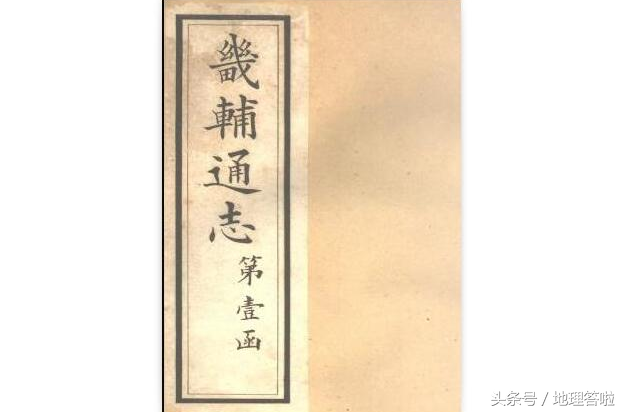 畿輔通志
第壹函
头条号 / 地理答啦